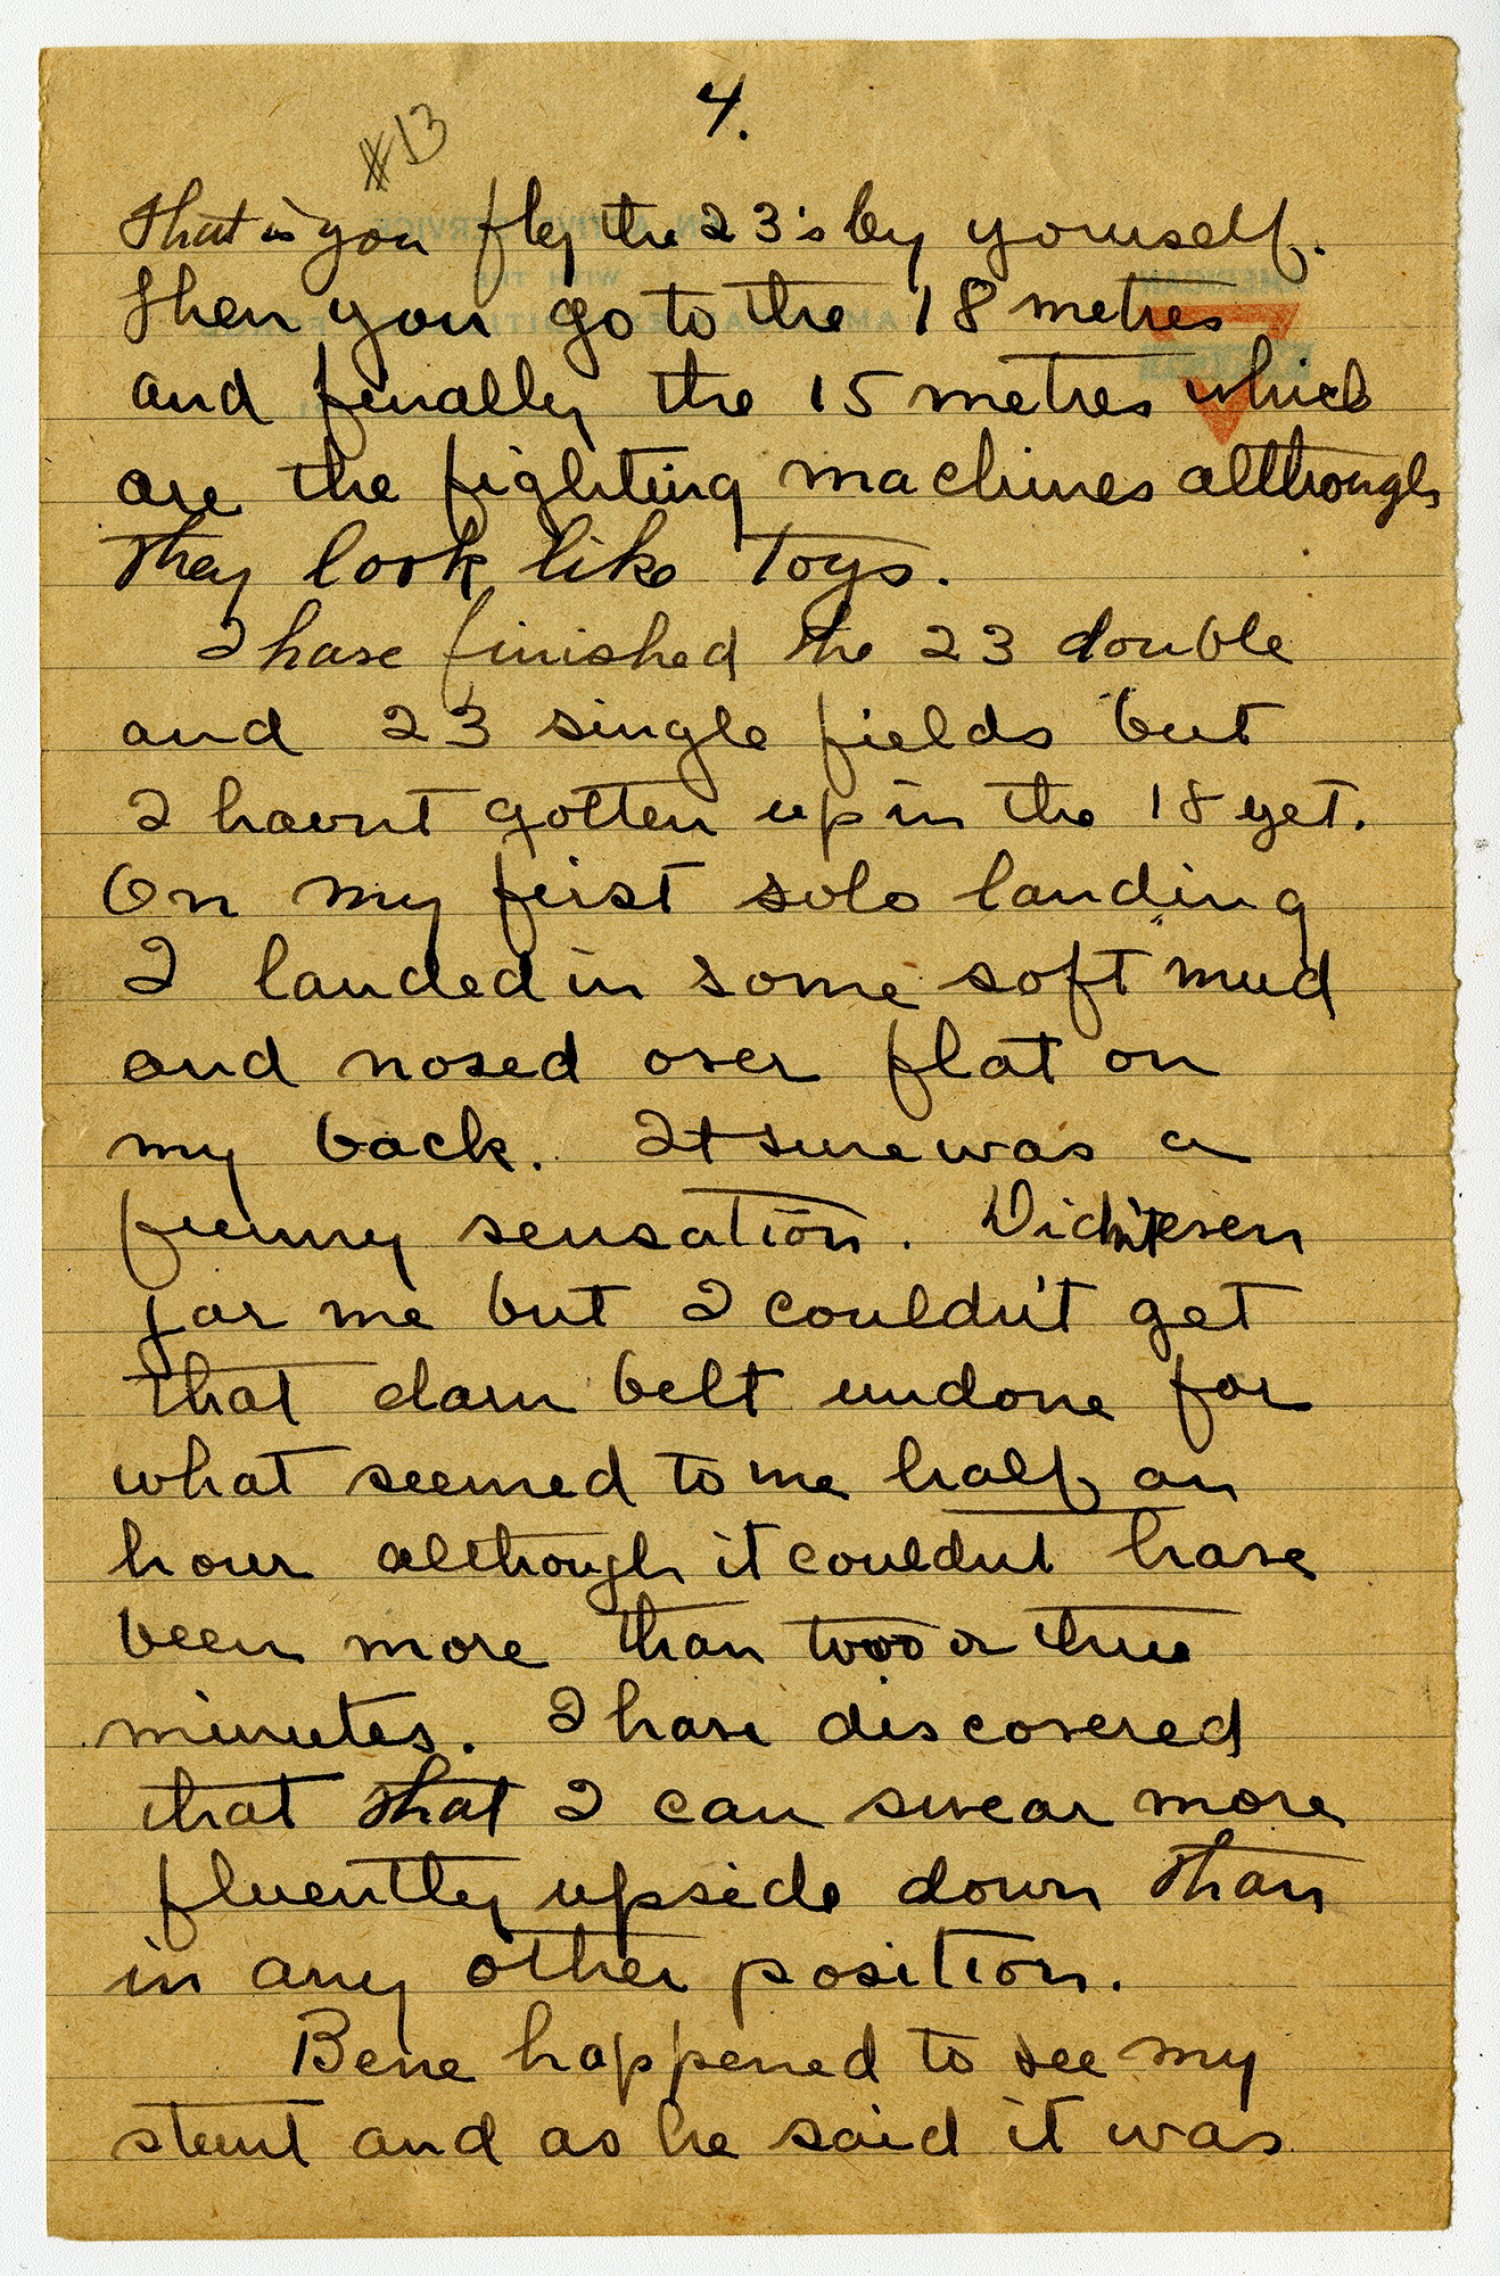 4.
#13
That is you fly the 23's by yourself.
Then you go to the 18 metres
and finally the 15 metres which
are the fighting machines although
they look like toys.
I have finished the 23 double
and 23 single fields but
I havn't gotten up in the 18 yet.
On my first solo landing
I landed in some soft mud
and nosed over flat on
my back. It sure was a
funny sensation. Didn't even
jar me but I couldn't get
that darn belt undone for
what seemed to me half an
hour although it couldnt have
been more than two or three
minutes. I have discovered
that that I can swear more
fluently upside down than
in any other position.
Bene happened to see my
stunt and as he said it was